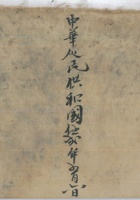 中華人民供和國年月日